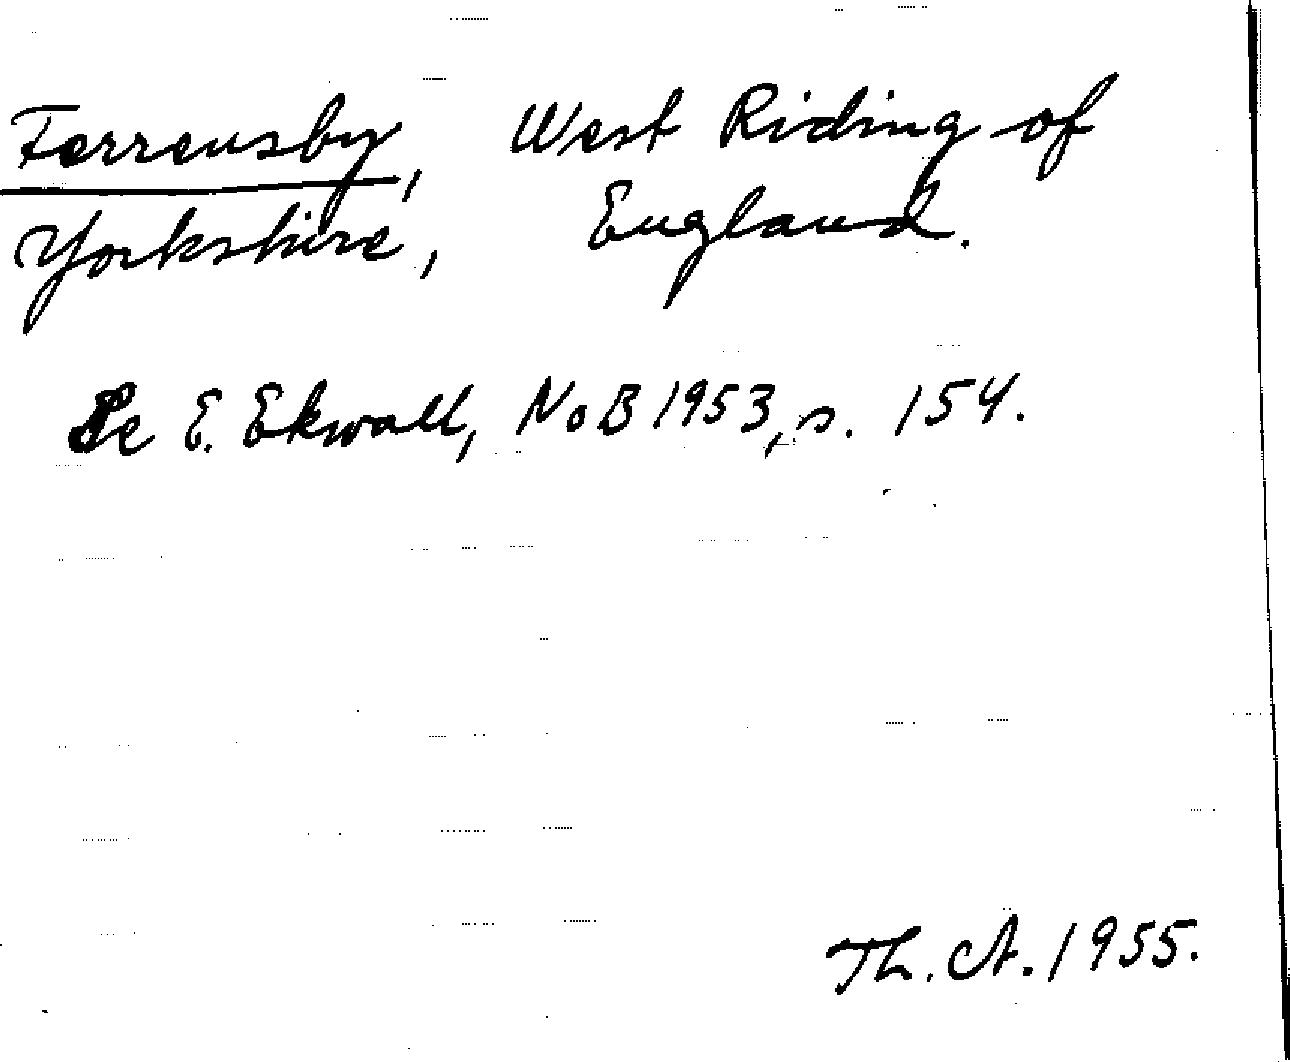 Ferrensby, West Riding of
Yorkshire, England.
Se E. Ekwall, NoB 1953, s. 154.
Th. A. 1955.